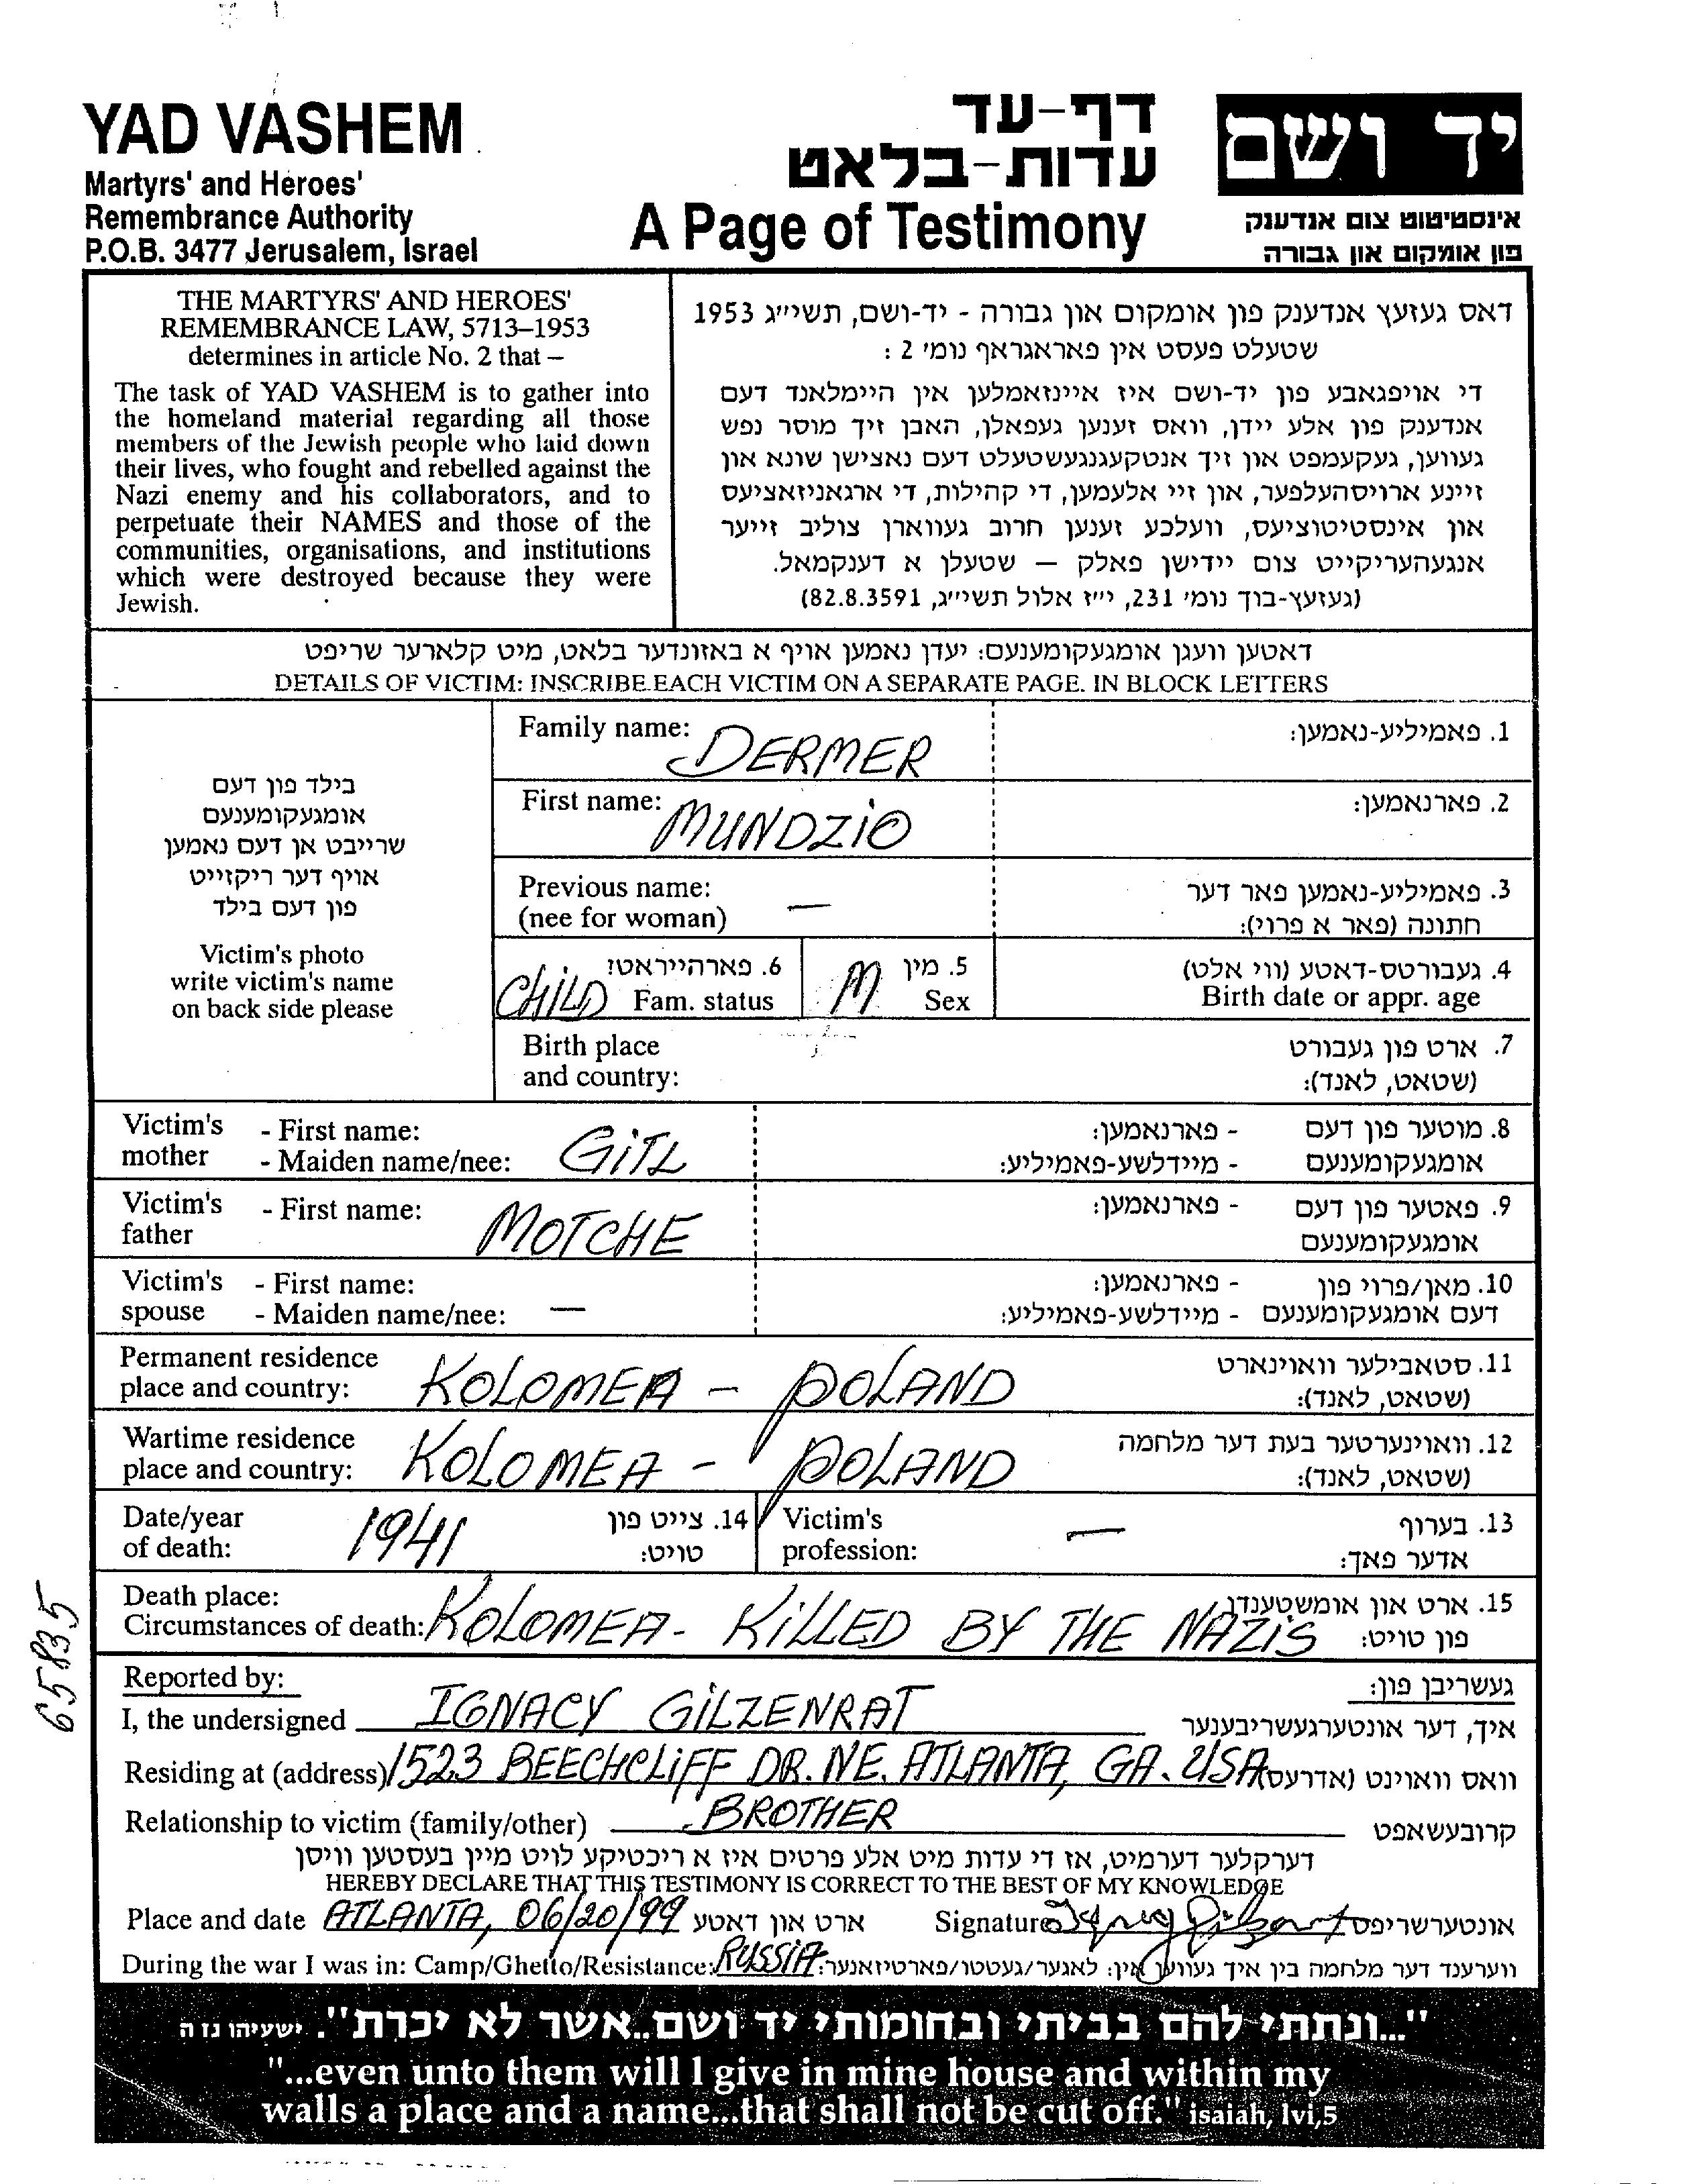 YAD VASHEM
Martyrs' and Heroes'
Remembrance Authority
P.O.B. 3477 Jerusalem, Israel
דף-עד
עדות-בלאט
A Page of Testimony
יד ושם
אינסטיטוט צום אנדענק
פון אומקום און גבורה
THE MARTYRS' AND HEROES'
REMEMBRANCE LAW, 5713–1953
determines in article No. 2 that –
The task of YAD VASHEM is to gather into
the homeland material regarding all those
members of the Jewish people who laid down
their lives, who fought and rebelled against the
Nazi enemy and his collaborators, and to
perpetuate their NAMES and those of the
communities, organisations, and institutions
which were destroyed because they were
Jewish.
דאס געזעץ אנדענק פון אומקום און גבורה - יד-ושם, תשי״ג 1953
שטעלט פעסט אין פאראגראף נומ׳ 2 :
די אויפגאבע פון יד-ושם איז איינזאמלען אין היימלאנד דעם
אנדענק פון אלע יידן, וואס זענען געפאלן, האבן זיך מוסר נפש
געווען, געקעמפט און זיך אנטקעגנגעשטעלט דעם נאצישן שונא און
זיינע ארויסהעלפער, און זיי אלעמען, די קהילות, די ארגאניזאציעס
און אינסטיטוציעס, וועלכע זענען חרוב געווארן צוליב זייער
אנגעהעריקייט צום יידישן פאלק — שטעלן א דענקמאל.
(געזעץ-בוך נומ׳ 231, י״ז אלול תשי״ג, 82.8.3591)
דאטען וועגן אומגעקומענעם: יעדן נאמען אויף א באזונדער בלאט, מיט קלארער שריפט
DETAILS OF VICTIM: INSCRIBE EACH VICTIM ON A SEPARATE PAGE. IN BLOCK LETTERS
בילד פון דעם
אומגעקומענעם
שרייבט אן דעם נאמען
אויף דער ריקזייט
פון דעם בילד
Victim's photo
write victim's name
on back side please
Family name: DERMER 1. פאמיליע-נאמען:
First name: MUNDZIO 2. פארנאמען:
Previous name: — 3. פאמיליע-נאמען פאר דער
(nee for woman) חתונה (פאר א פרוי):
CHILD 6. פארהייראטז M 5. מין 4. געבורטס-דאטע (ווי אלט)
Fam. status Sex Birth date or appr. age
Birth place 7. ארט פון געבורט
and country: (שטאט, לאנד):
Victim's - First name: GITL - פארנאמען: 8. מוטער פון דעם
mother - Maiden name/nee: - מיידלשע-פאמיליע: אומגעקומענעם
Victim's - First name: MOTCHE - פארנאמען: 9. פאטער פון דעם
father אומגעקומענעם
Victim's - First name: - פארנאמען: 10. מאן/פרוי פון
spouse - Maiden name/nee: — - מיידלשע-פאמיליע: דעם אומגעקומענעם
Permanent residence 11. סטאבילער וואוינארט
place and country: KOLOMEA - POLAND (שטאט, לאנד):
Wartime residence 12. וואוינערטער בעת דער מלחמה
place and country: KOLOMEA - POLAND (שטאט, לאנד):
Date/year 1941 14. צייט פון Victim's — 13. בערוף
of death: טויט: profession: אדער פאך:
Death place: 15. ארט און אומשטענדן
Circumstances of death: KOLOMEA - KILLED BY THE NAZIS פון טויט:
65835
Reported by: געשריבן פון:
I, the undersigned IGNACY GILZENRAT איך, דער אונטערגעשריבענער
Residing at (address) 1523 BEECHCLIFF DR. NE. ATLANTA, GA. USA וואס וואוינט (אדרעס)
Relationship to victim (family/other) BROTHER קרובעשאפט
דערקלער דערמיט, אז די עדות מיט אלע פרטים איז א ריכטיקע לויט מיין בעסטען וויסן
HEREBY DECLARE THAT THIS TESTIMONY IS CORRECT TO THE BEST OF MY KNOWLEDGE
Place and date ATLANTA, 06/20/99 ארט און דאטע Signature אונטערשריפט
During the war I was in: Camp/Ghetto/Resistance: RUSSIA ווערענד דער מלחמה בין איך געווען אין: לאגער/געטטו/פארטיזאנער:
"...ונתתי להם בביתי ובחומותי יד ושם..אשר לא יכרת". ישעיהו נז ה
"...even unto them will I give in mine house and within my
walls a place and a name...that shall not be cut off." isaiah, lvi,5